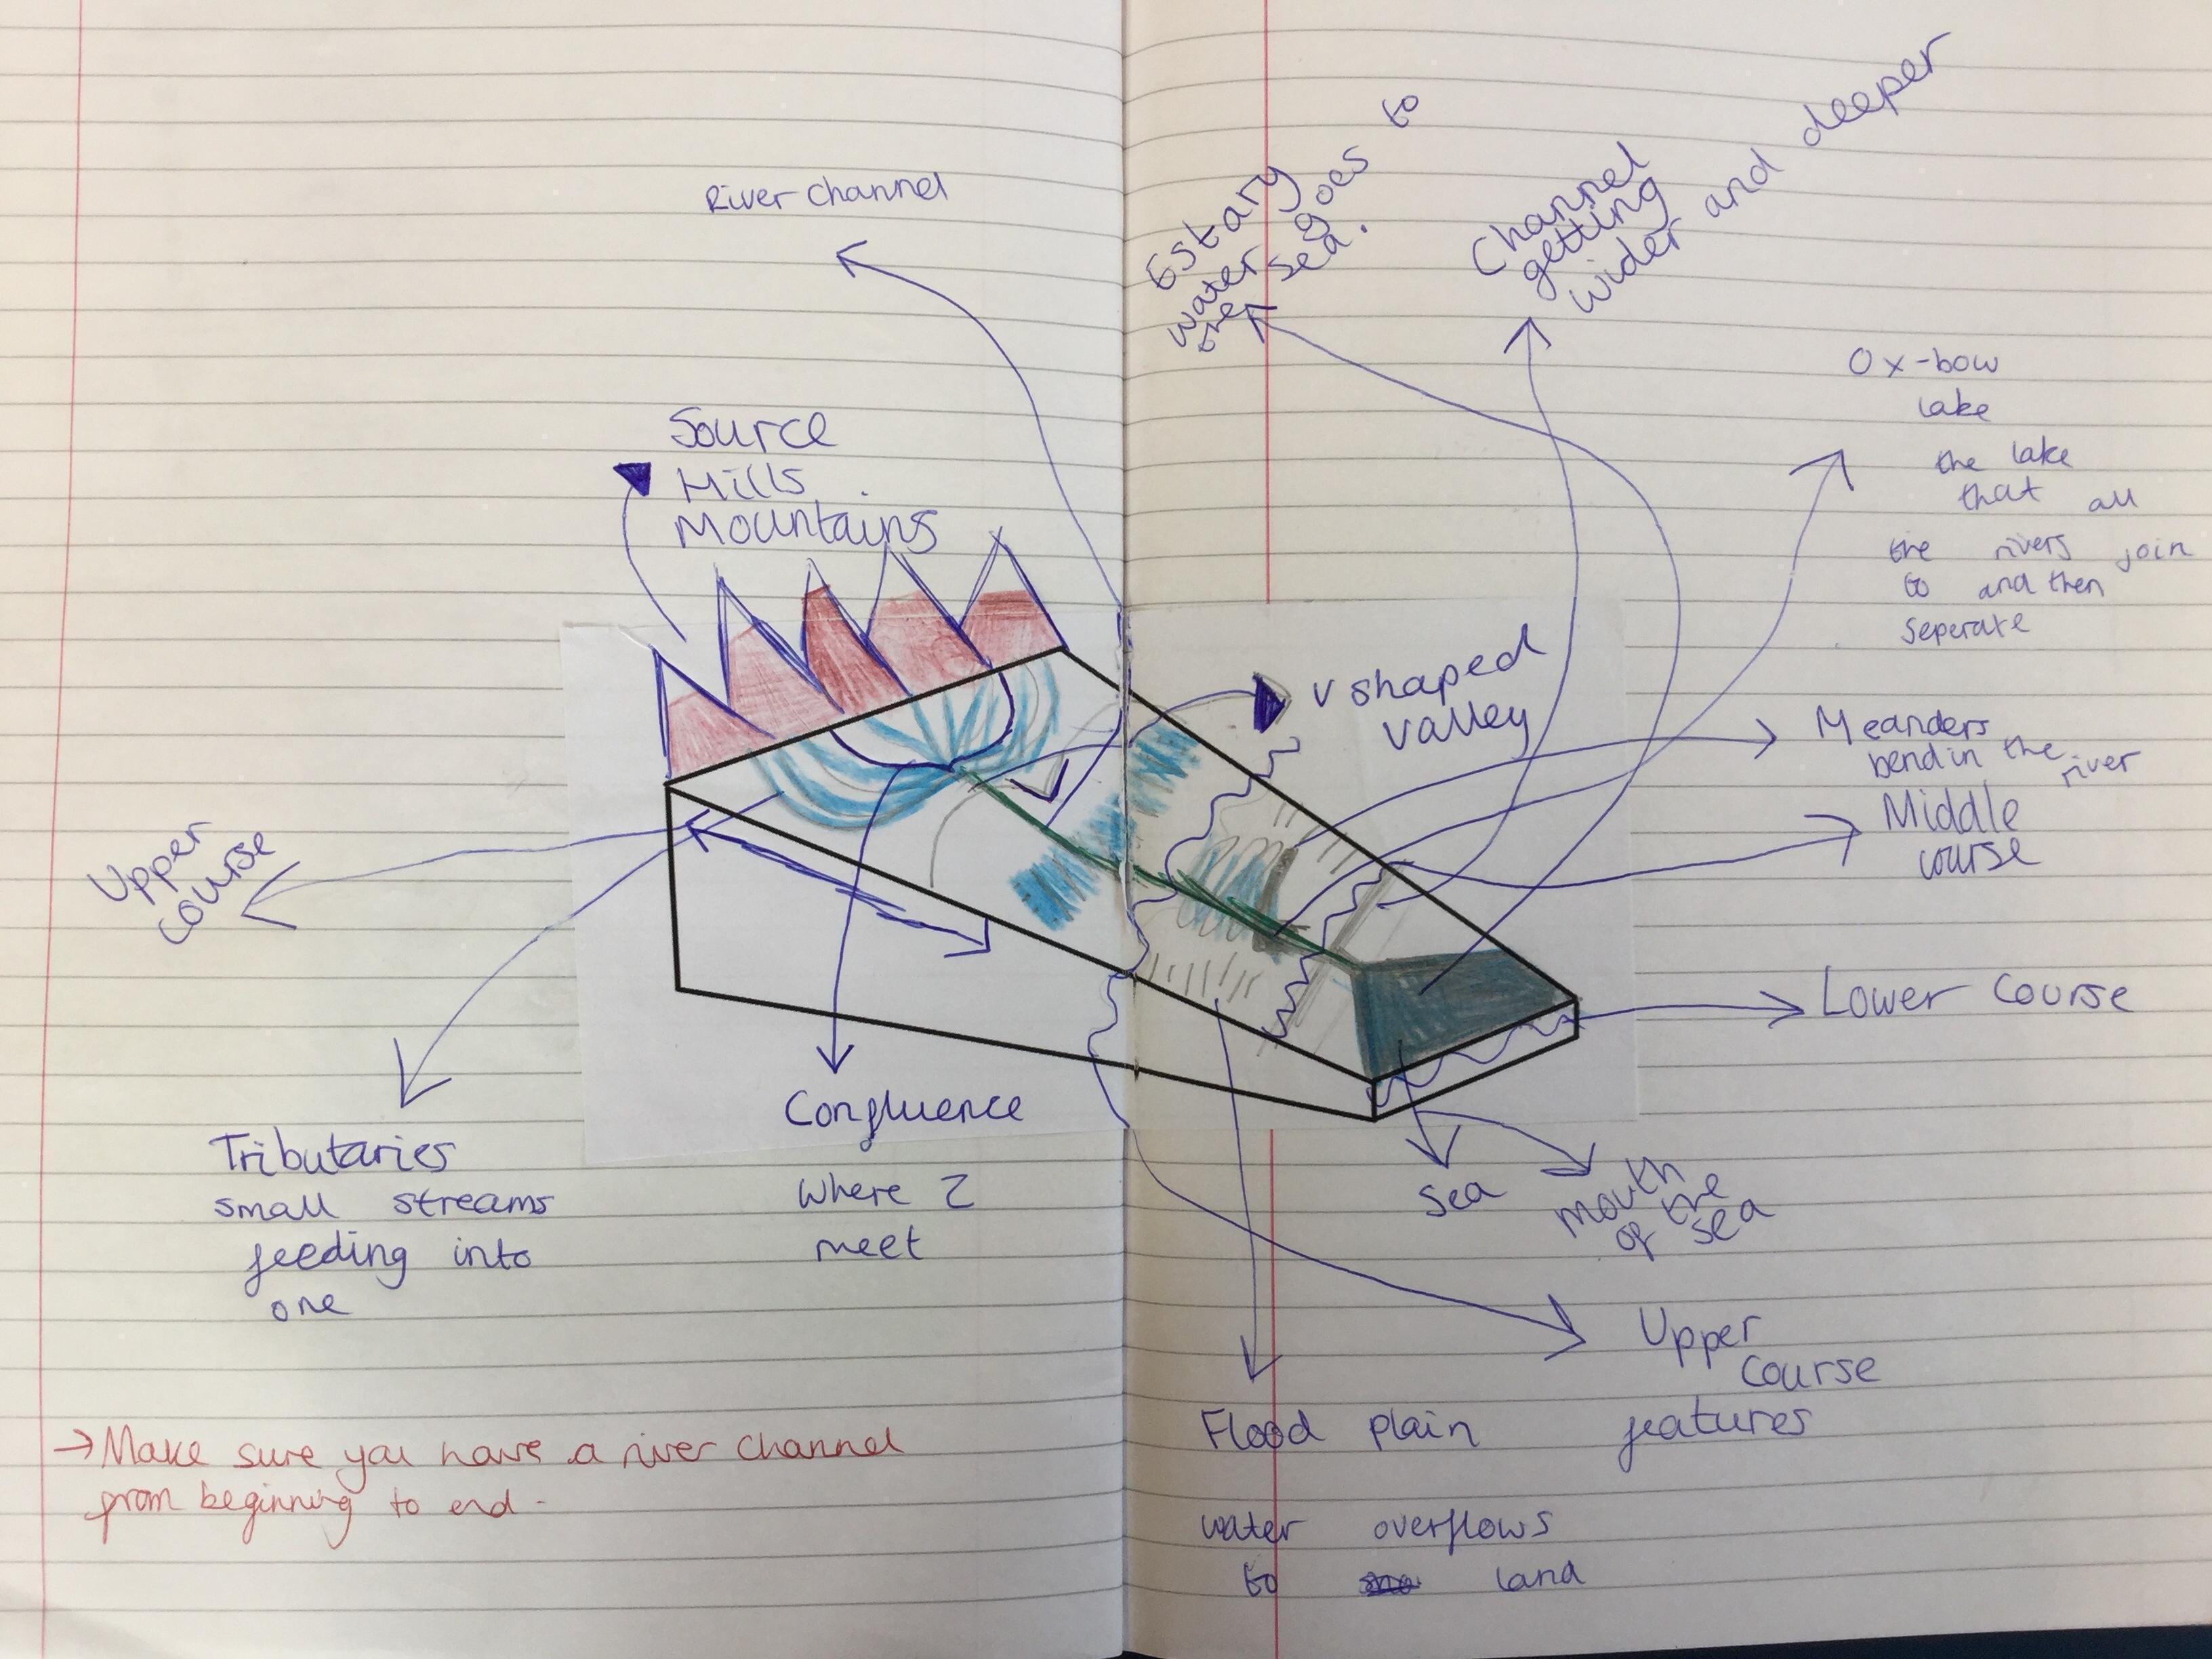 River Channel
Source
Hills
Mountains
Upper
course
Tributaries
small streams
feeding into
one
Confluence
Where 2
meet
→Make sure you have a river channel
from beginning to end-
Estary
water goes to
the sea.
Channel
getting
wider and deeper
Ox-bow
lake
the lake
that all
the rivers join
to and then
Seperate
V shaped
valley
Meanders
bend in the river
Middle
course
Lower Course
Sea
mouth
of the
sea
Upper
Course
features
Flood plain
water overflows
to land